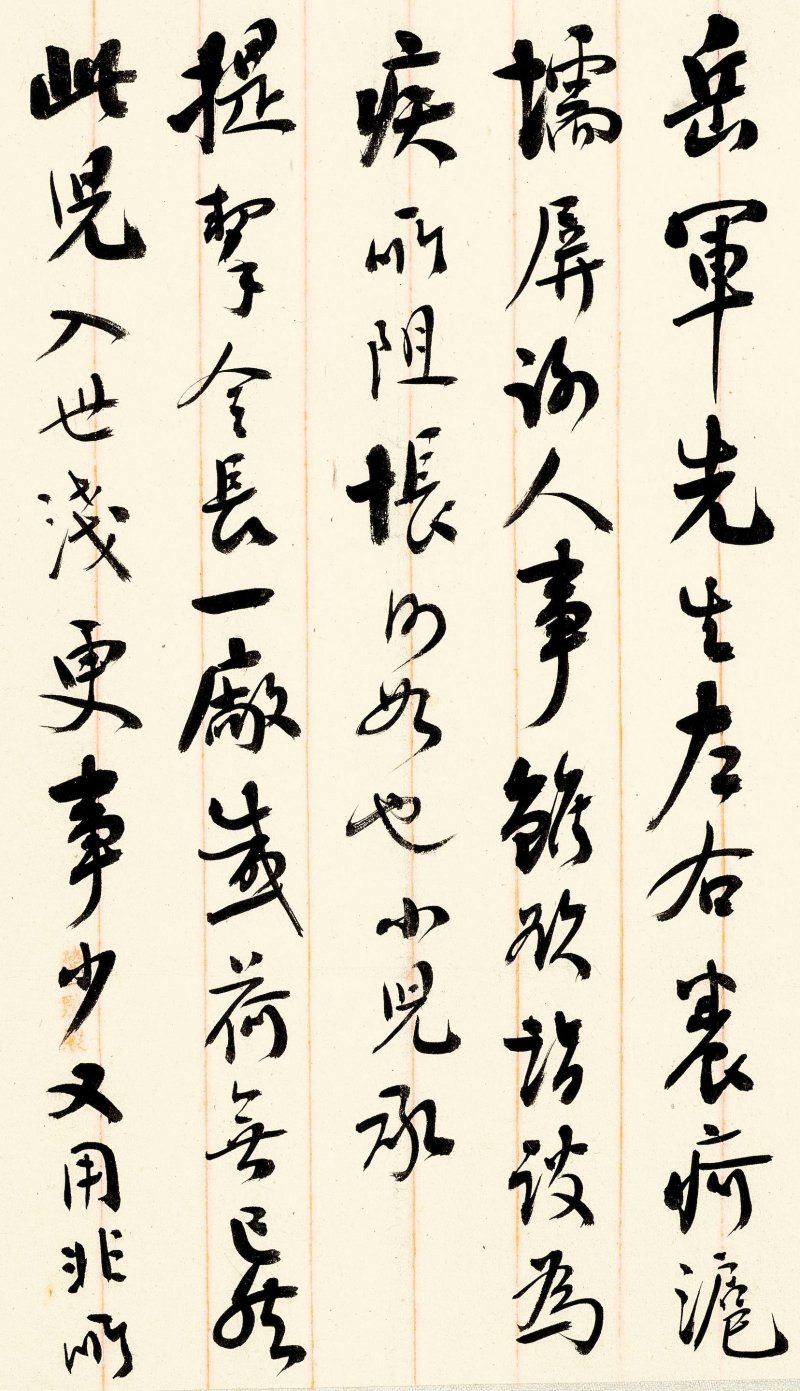 岳軍先生左右養痾滬
壖屏謝人事雖欲詣談為
疾所阻悵何如也小兒承
提挈令長一廠感荷無已然
此兒入世淺更事少又用非所